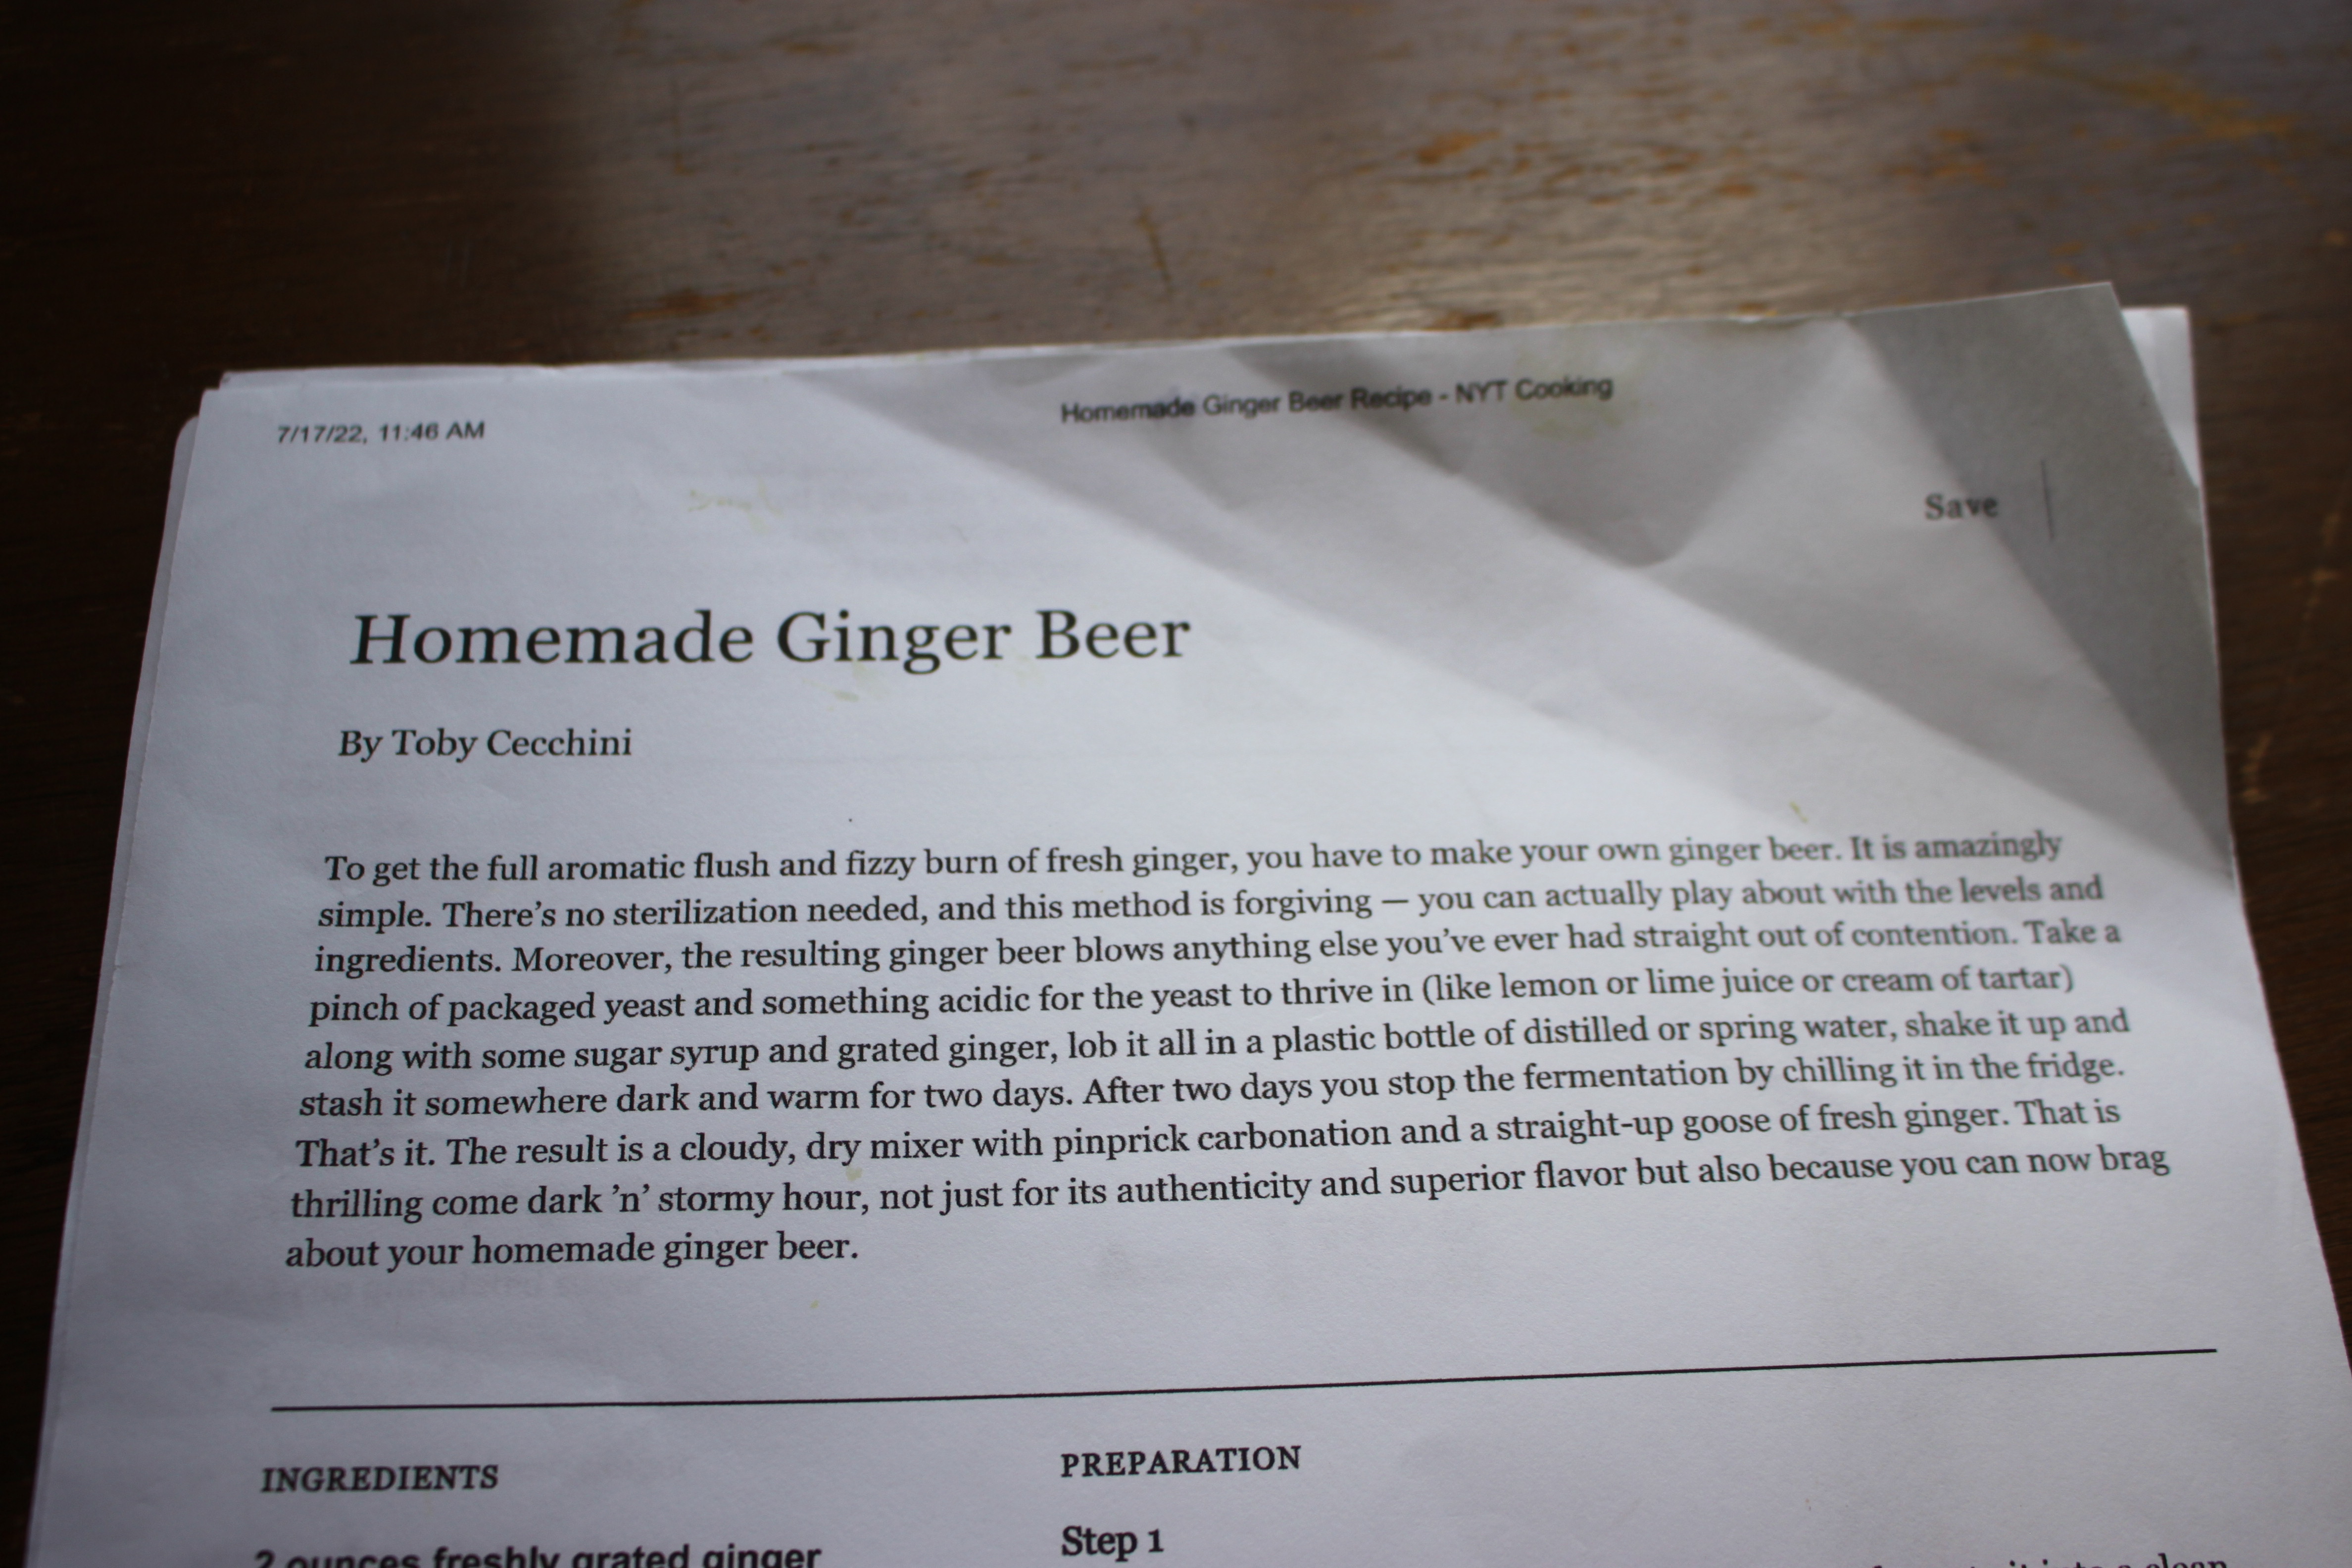 7/17/22, 11:46 AM
Homemade Ginger Beer Recipe - NYT Cooking
Save
Homemade Ginger Beer
By Toby Cecchini
To get the full aromatic flush and fizzy burn of fresh ginger, you have to make your own ginger beer. It is amazingly
simple. There’s no sterilization needed, and this method is forgiving — you can actually play about with the levels and
ingredients. Moreover, the resulting ginger beer blows anything else you’ve ever had straight out of contention. Take a
pinch of packaged yeast and something acidic for the yeast to thrive in (like lemon or lime juice or cream of tartar)
along with some sugar syrup and grated ginger, lob it all in a plastic bottle of distilled or spring water, shake it up and
stash it somewhere dark and warm for two days. After two days you stop the fermentation by chilling it in the fridge.
That’s it. The result is a cloudy, dry mixer with pinprick carbonation and a straight-up goose of fresh ginger. That is
thrilling come dark ’n’ stormy hour, not just for its authenticity and superior flavor but also because you can now brag
about your homemade ginger beer.
INGREDIENTS
2 ounces freshly grated ginger
PREPARATION
Step 1
it into a clean